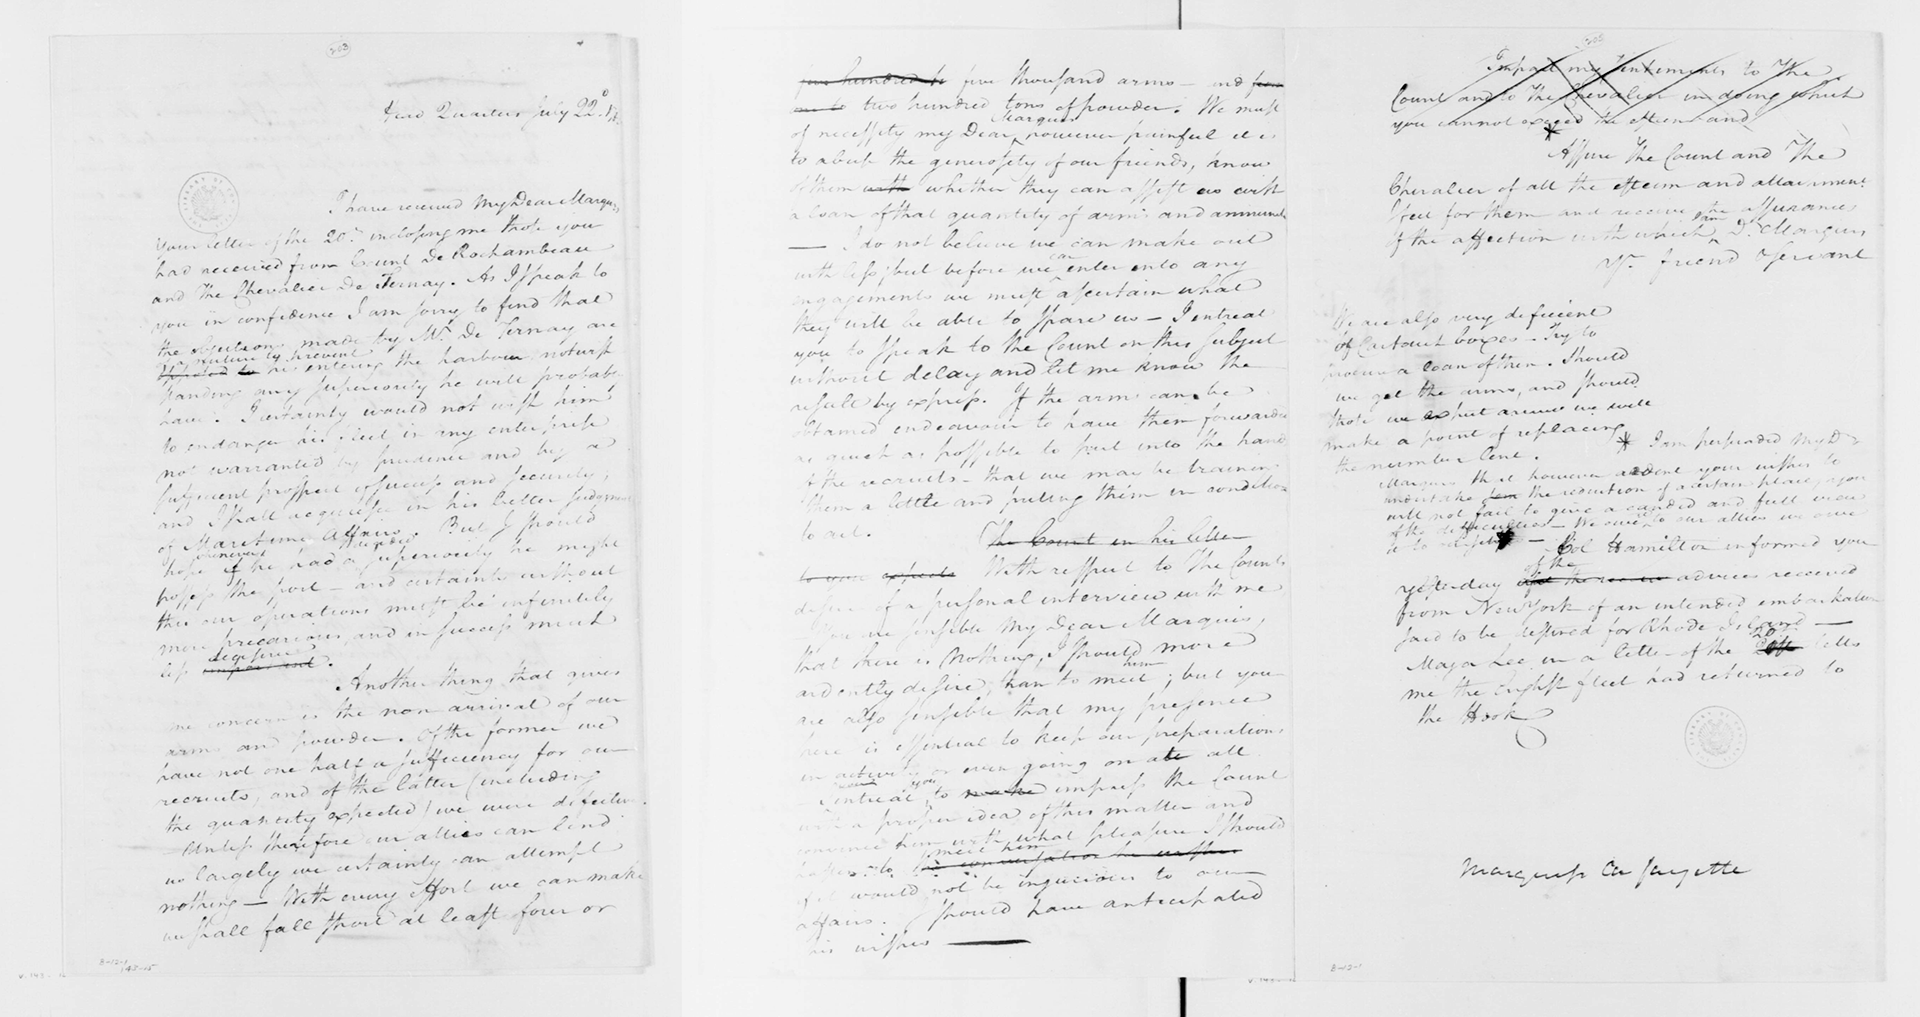 203
Head Quarters July 22d
I have received My Dear Marquis
Your letter of the 20th inclosing me those you
had received from Count De Rochambeau
and The Chevalier De Ternay. As I speak to
you in confidence I am sorry to find that
the objections made by Mr. De Ternay are
future ly prevent
opposed to his entering the harbour notwith
standing any superiority he will probab
have. I certainly would not wish him
to endanger his fleet in any enterprise
not warranted by prudence and by a
sufficient prospect of success and security;
and I shall acquiesce in his better judgment
of Maritime Affairs. But I should
whenever
hope if he had a superiority he might
possess the port – and certainly without
this our operations must be infinitely
more precarious, and in success much
decisive
less important.
Another thing that gives
me concern is the non arrival of our
arms and powder. Of the former we
have not one half a sufficiency for our
recruits, and of the latter (including
the quantity expected) we were defective.
– Unless therefore our allies can lend
us largely we certainly can attempt
nothing – With every effort we can make
we shall fall short at least four or
8-12-1
143-15
five hundred to five thousand arms – and from
two hundred tons of powder. We must
Marquis
of necessity my Dear however painful it is
to abuse the generosity of our friends, know
of them with whether they can assist us with
a loan of that quantity of arms and ammuni
— I do not believe we can make out
can
with less; but before we enter into any
engagements we must ascertain what
they will be able to spare us – I entreat
you to speak to the Count on this subject
without delay and let me know the
result by express. If the arms can be
obtained endeavour to have them forwarded
as quick as possible to put into the hands
of the recruits – that we may be training
them a little and putting them in condition
to act.
The Count in his letter
to you expects With respect to The Counts
desire of a personal interview with me
– You are sensible My Dear Marquis,
that there is Nothing, I should more
him
ardently desire, than to meet; but you
are also sensible that my presence
here is essential to keep our preparations
in activity, or even going on at all.
you
– I intreat to make impress the Count
with a proper idea of this matter and
convince him with what pleasure I should
meet him
hasten to his conversation he wishes
if it would not be injurious to our
affairs. I should have anticipated
his wishes —
205
Impart my Sentiments to The
Count and to The Chevalier in doing which
you cannot exceed the esteem and
* Assure The Count and The
Chevalier of all the esteem and attachment
I feel for them and receive the assurances
of the affection with which I am Dr. Marquis
Yr. friend & Servant
We are also very deficient
of Cartouch boxes – Try to
procure a loan of them. Should
we get the arms, and should
those we expect arrive we will
make a point of replacing
the number lent.
* I am persuaded My Dr
Marquis that however ardent your wishes to
undertake the reduction of a certain place, you
will not fail to give a candid and full view
of the difficulties – We owe it to our allies we owe
it to
Col Hamilton informed you
of the
yesterday advices received
from New York of an intended embarkation
said to be destined for Rhode Island –
20
Major Lee in a letter of the tells
me the English fleet had returned to
the Hook
Marquiss La fayette
8-12-1